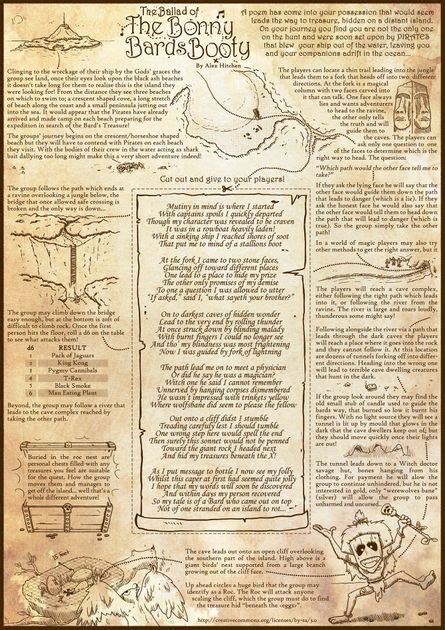 The Ballad of
The Bonny
Bards Booty
By Alex Hitchen
A poem has come into your possession that would seem
leads the way to treasure, hidden on a distant island.
On your journey you find you are not the only one
on the hunt and were soon set upon by PIRATES
that blew your ship out of the water, leaving you
and your companions adrift in the ocean...
Clinging to the wreckage of their ship by the Gods' graces the
group see land, once their eyes look upon the black ash beaches
it doesn't take long for them to realise this is the island they
were looking for! From the distance they see three beaches
on which to swim to; a crescent shaped cove, a long stretch
of beach along the coast and a small peninsula jutting out
into the sea. It would appear that the Pirates have already
arrived and made camp on each beach preparing for the
expedition in search of the Bard's Treasure!
The groups' journey begins on the crescent/horseshoe shaped
beach but they will have to contend with Pirates on each beach
they visit. With the bodies of their crew in the water acting as shark
bait dallying too long might make this a very short adventure indeed!
The players can locate a thin trail leading into the jungle
that leads them to a fork that heads off into two different
directions. At the fork is a magical
column with two faces carved into
it that can talk. One face always
lies and wants adventurers
to head to the ravine,
the other only tells
the truth and will
guide them to
the caves. The players can
ask only one question to one
of the faces to determine which is the
right way to head. The question:
"Which path would the other face tell me to
take?"
If they ask the lying face he will say that the
other face would guide them down the path
that leads to danger (which is a lie). If they
ask the honest face he would also say that
the other face would tell them to head down
the path that will lead to danger (which is
true). So the group simply take the other
path!
In a world of magic players may also try
other methods to get the right answer, but it
Cut out and give to your players!
The group follows the path which ends at
a ravine overlooking a jungle below, the
bridge that once allowed safe crossing is
broken and the only way is down...
Mutiny in mind is where I started
With captains spoils I quickly departed
Though my character was revealed to be craven
It was in a rowboat heavily laden!
With a sinking ship I reached shores of soot
That put me in mind of a stallions boot
At the fork I came to two stone faces,
Glancing off toward different places
One lead to a place to hide my prize
The other only promises of my demise
To one a question I was allowed to utter
"If asked," said I, "what sayeth your brother?"
On to darkest caves of hidden wonder
Lead to the very end by rolling thunder
At once struck down by blinding malady
With burnt fingers I could no longer see
But tho' my blindness was most frightening
Now I was guided by fork of lightning
The path lead me on to meet a physician
Or did he say he was a magician?
Which one he said I cannot remember
Unnerved by hanging corpses dismembered
He wasn't impressed with trinkets yellow
Where wolfsbane did seem to please the fellow
Out onto a cliff didst I stumble
Treading carefully lest I should tumble
One wrong step here would spell the end
Then surely this sonnet would not be penned
Toward the giant rock I headed next
And hid my treasures beneath the X!
As I put message to bottle I now see my folly
Whilst this caper at first had seemed quite jolly
I hope that my words will soon be discovered
And within days my person recovered
So my tale is of a Bard who came out on top
Not of one stranded on an island to rot...
The group may climb down the bridge
easy enough, but at the bottom is soft
difficult to climb rock. Once the first
person hits the floor, roll a d6 on the table
to see what attacks them!
d6 RESULT
1 Pack of Jaguars
2 King Kong
3 Pygmy Cannibals
4 T-Rex
5 Black Smoke
6 Man Eating Plant
Beyond, the group may follow a river that
leads to the cave complex reached by
taking the other path.
The players will reach a cave complex,
either following the right path which leads
into it, or following the river from the
ravine. The river is large and roars loudly,
thunderous some might say!
Following alongside the river via a path that
leads through the dark caves the players
will reach a place where it goes into the rock
and they cannot follow it. At this location
are dozens of tunnels forking off into differ-
ent directions. Heading into the wrong one
will lead to terrible cave dwelling creatures
that hunt in the dark.
If the group look around they may find the
old small stub of candle used to guide the
bards way, that burned so low it burnt his
fingers. With no light source they will see a
tunnel is lit up by mould that glows in the
dark that the cave dwellers keep out of, but
they should move quickly once their lights
are out!
The tunnel leads down to a Witch doctors
savage hut, bones hanging from his
clothing. For payment he will allow the
group to continue unhindered, but he is not
interested in gold, only "werewolves bane"
(silver) will allow the group to pass
unharmed and uncursed.
Buried in the roc nest are
personal chests filled with any
treasures you feel are suitable
for the quest. How the group
moves them and manages to
get off the island... well that's a
whole different adventure!
The cave leads out onto an open cliff overlooking
the southern part of the island. High above is a
giant birds' nest supported from a large branch
growing out of the cliff face.
Up ahead circles a huge bird that the group may
identify as a Roc. The Roc will attack anyone
scaling the cliff, which the group must do to find
the treasure hid "beneath the eggs".
http://creativecommons.org/licenses/by-sa/3.0